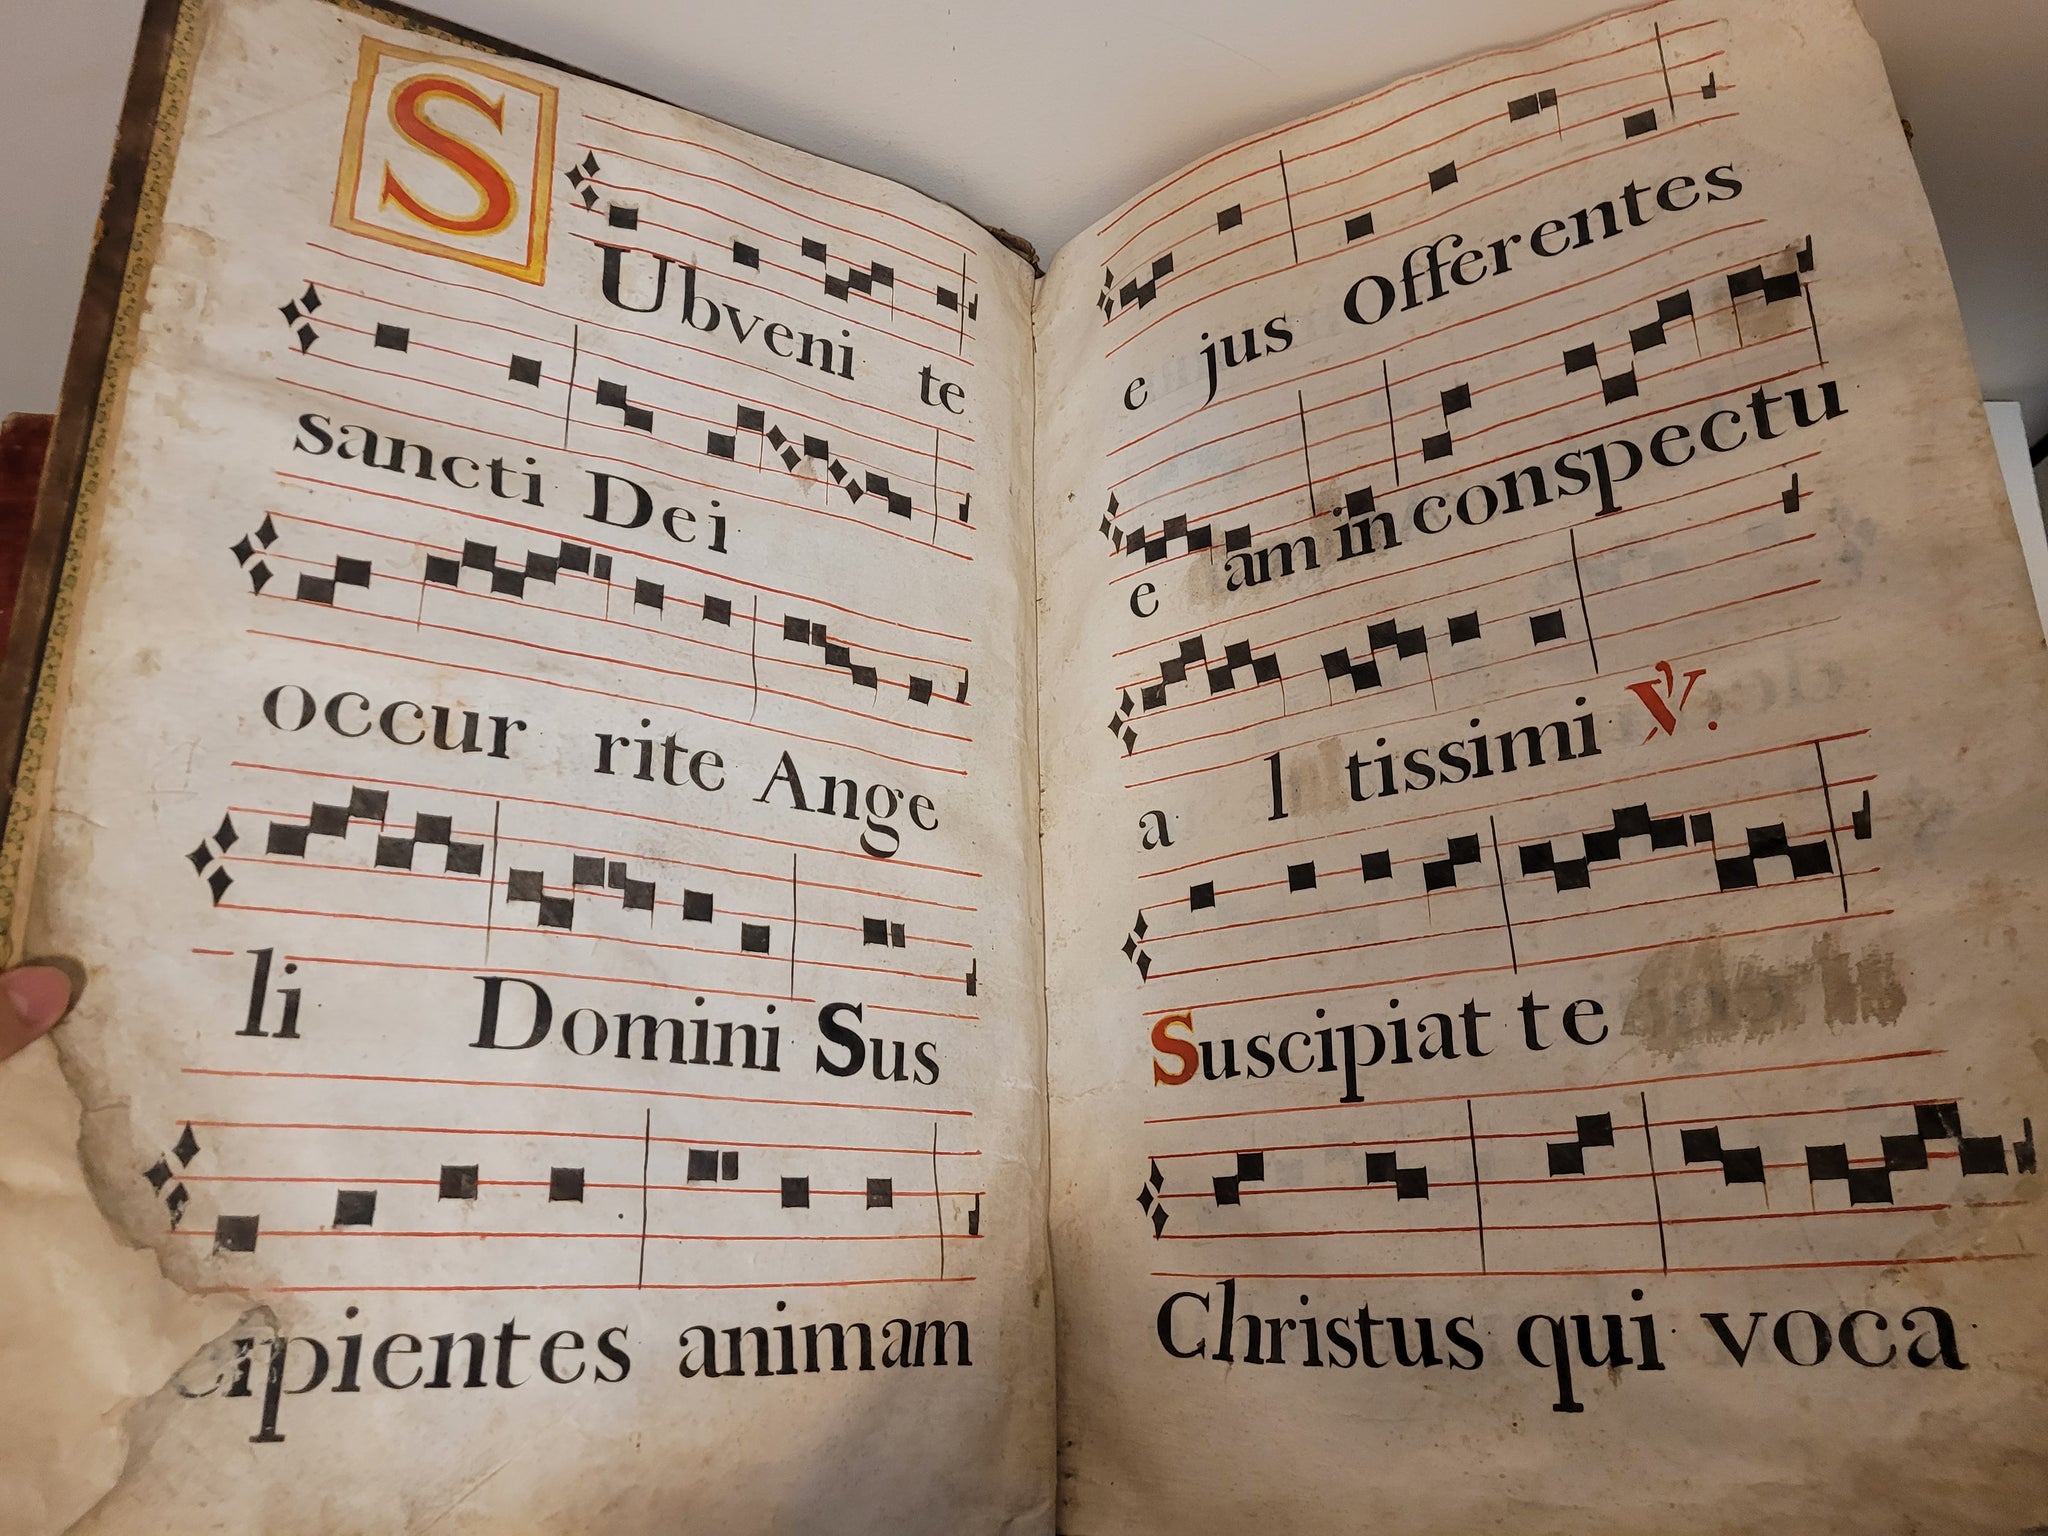 SUbveni te
sancti Dei
occur rite Ange
li Domini Sus
cipientes animam
e jus Offerentes
e am in conspectu
a l tissimi ℣.
Suscipiat te
Christus qui voca